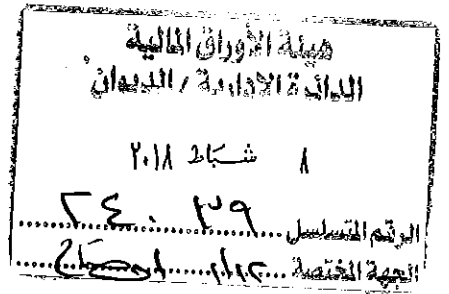 هيئة الأوراق المالية
الدائرة الادارية / الديوان
٨ شباط ٢٠١٨
الرقم المتسلسل
الجهة المختصة